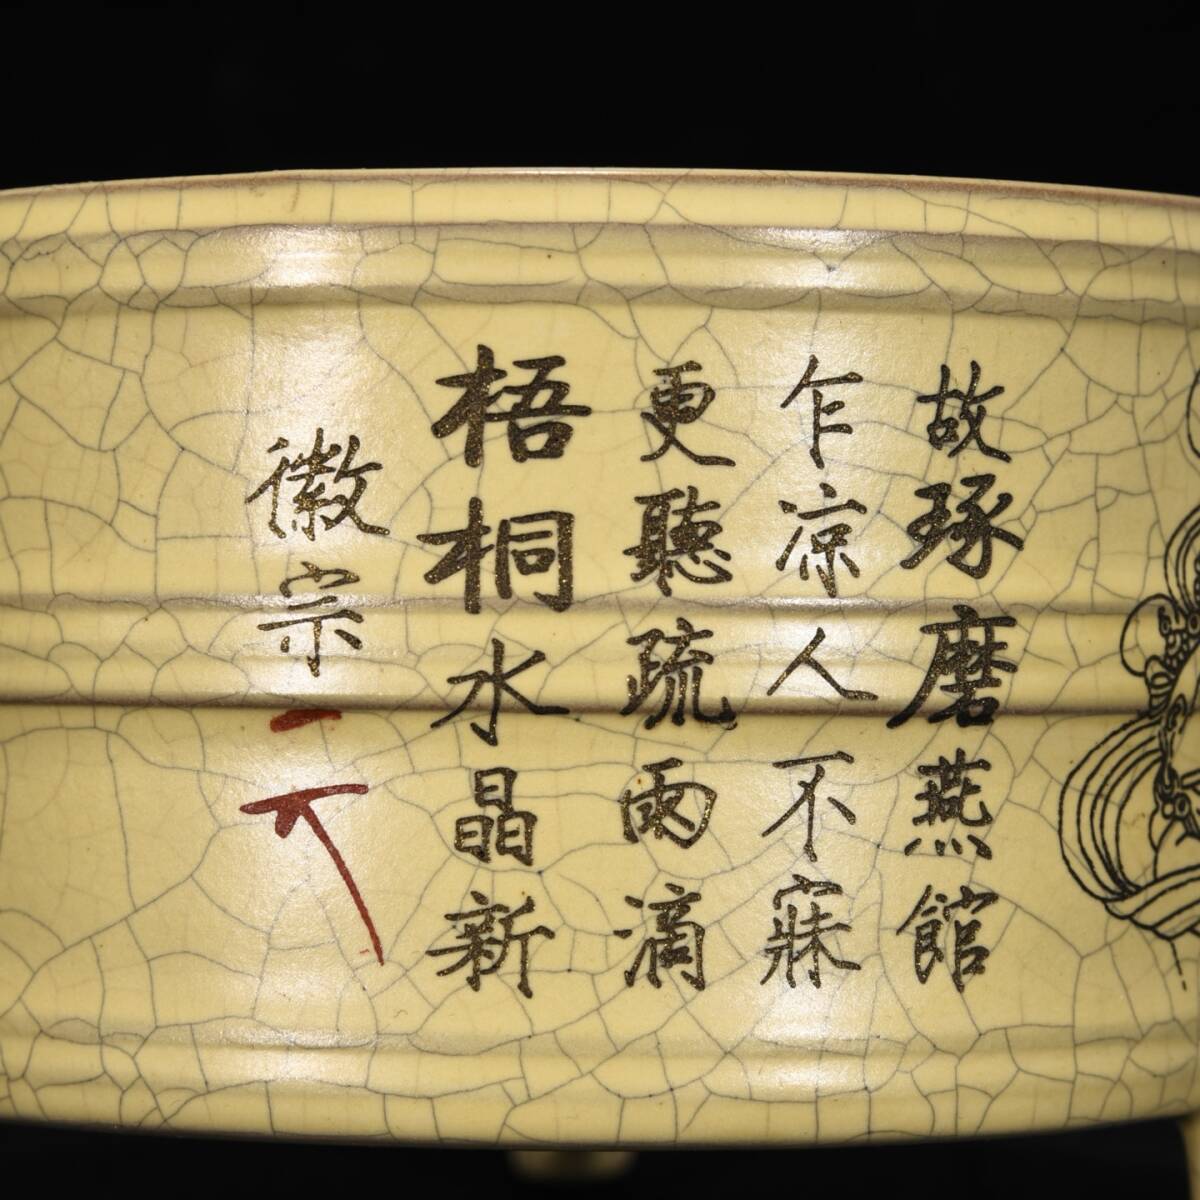 故琢磨燕館
乍凉人不寐
更聽疏雨滴
梧桐水晶新
徽宗